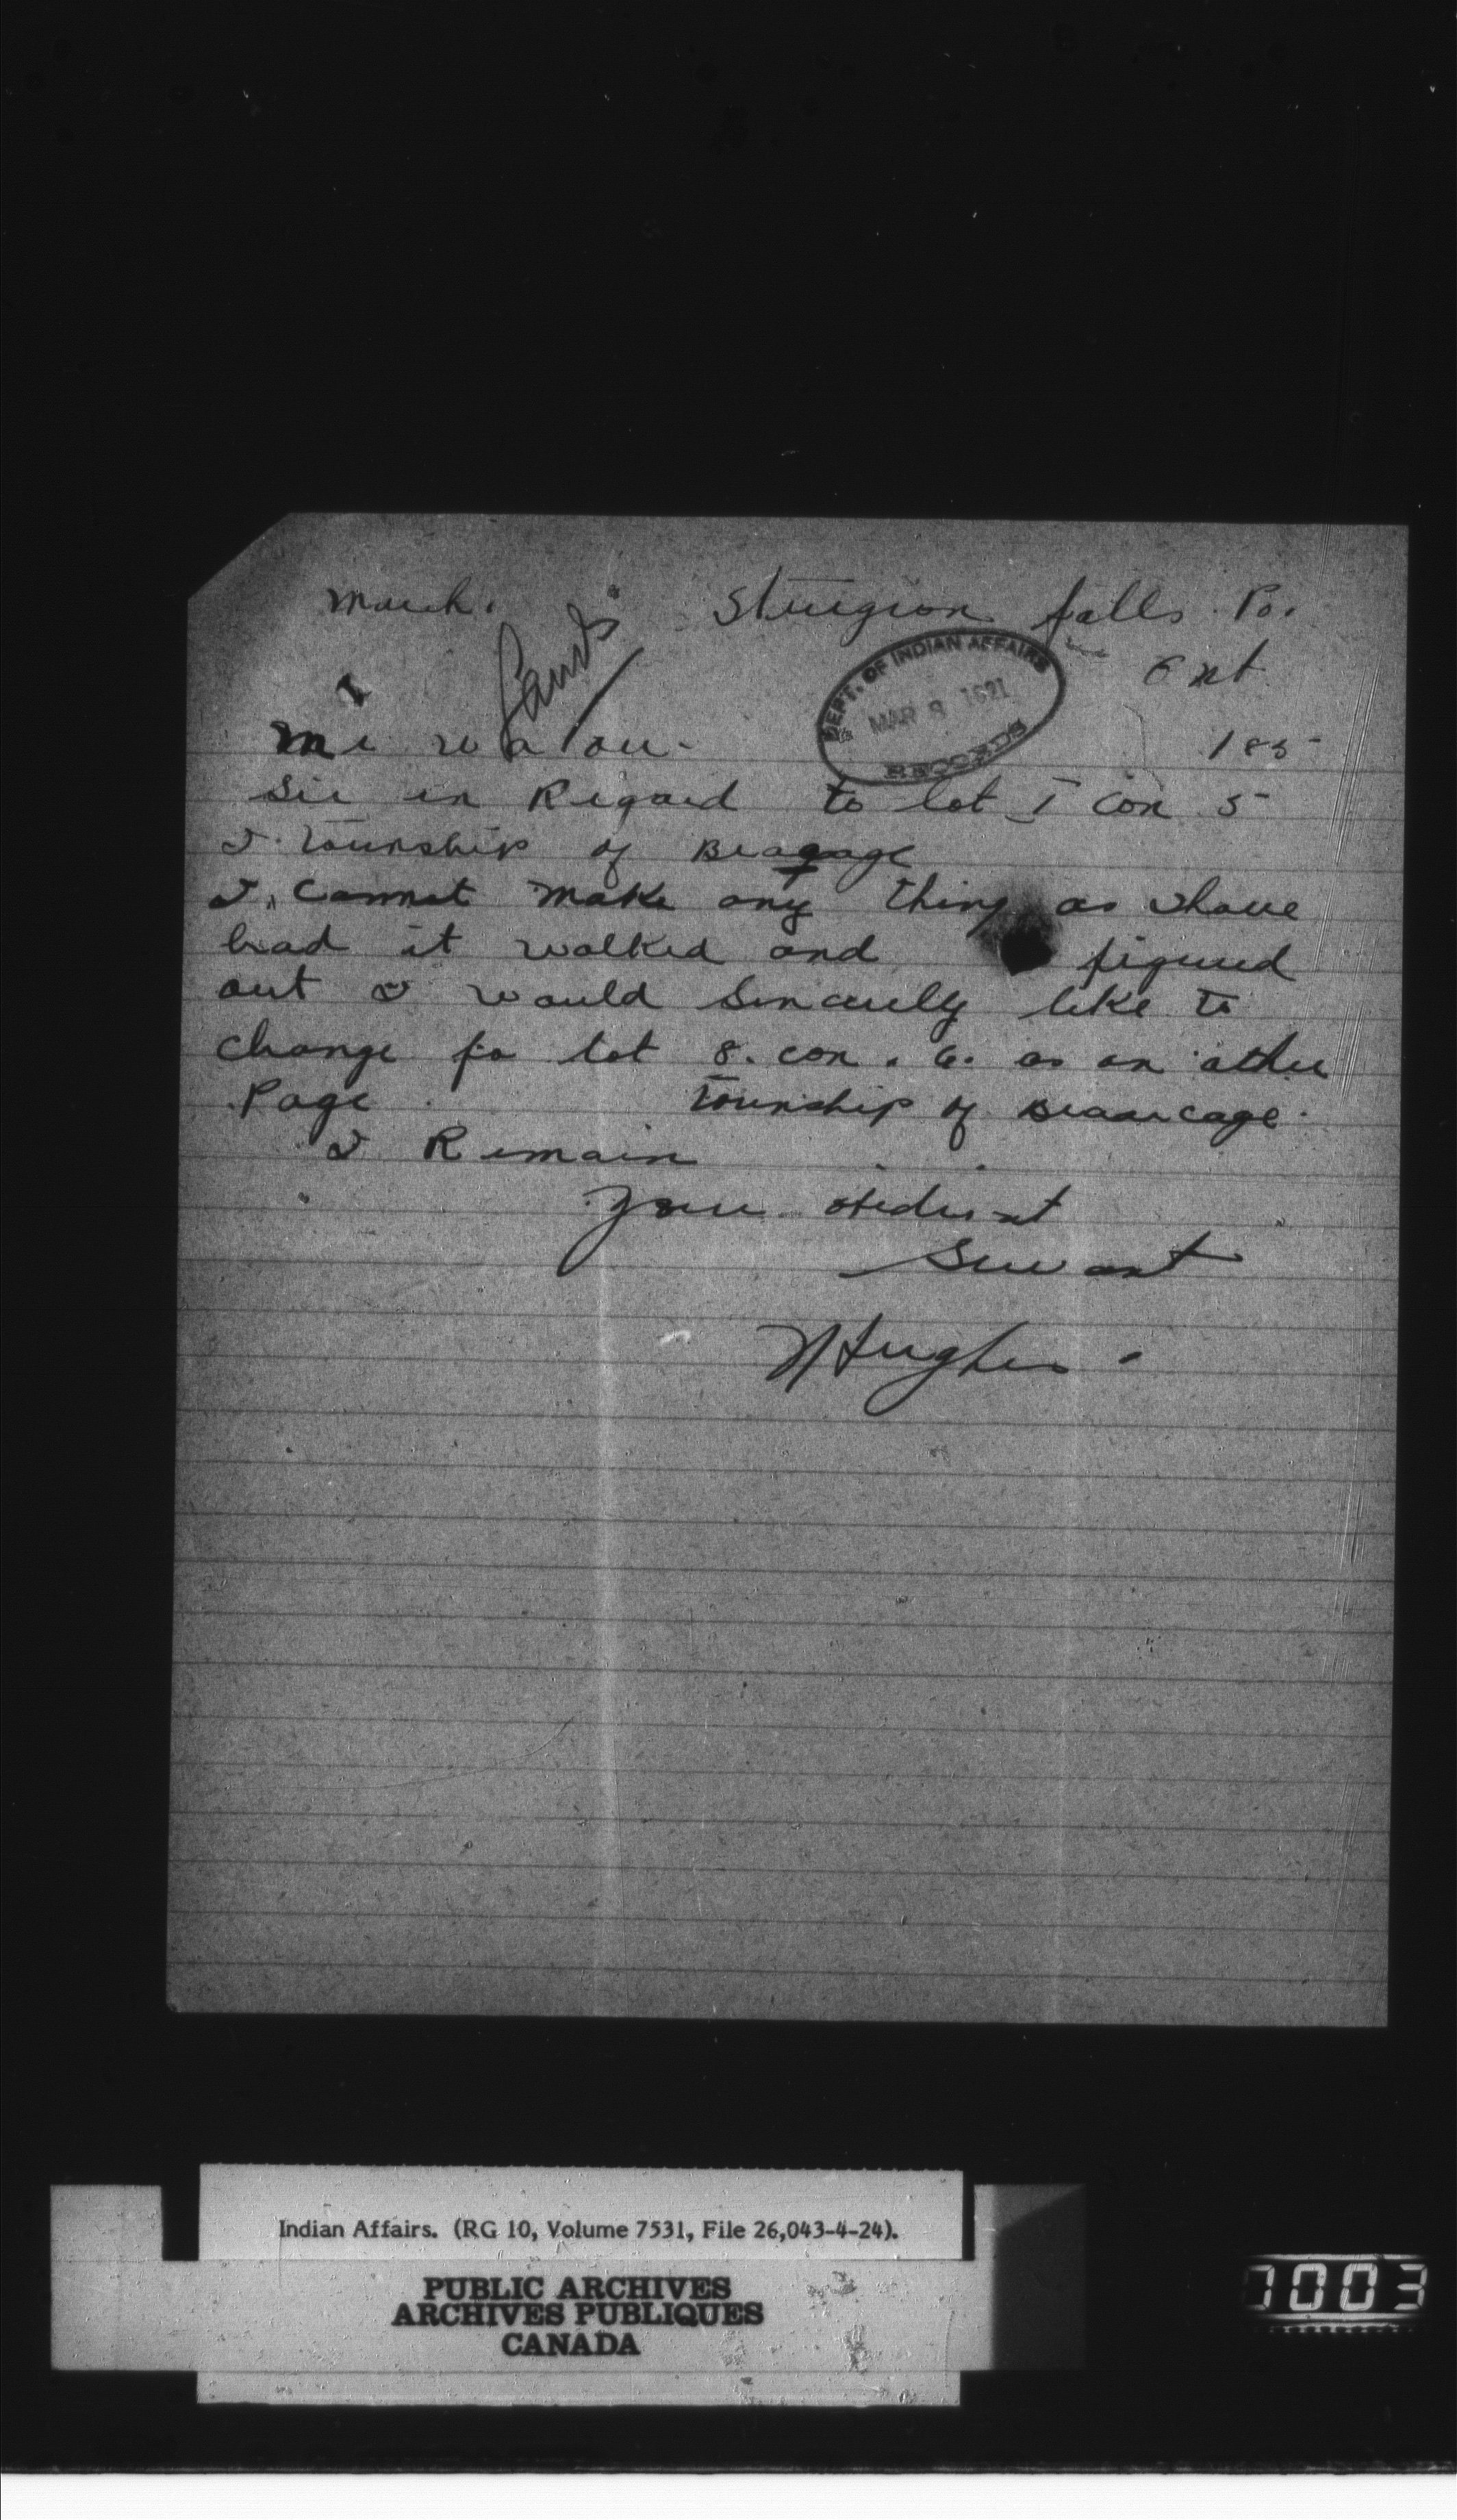 March. Sturgion falls Po.
Ont.
Lands
DEPT. OF INDIAN AFFAIRS
MAR 9 1921
RECORDS
Mr
185
Sir in Regard to lot I con 5
township of
I. Cannot make any thing as I have
had it walked and figured
out I would Sincerelly like to
change fo lot 8. con. 6. as on other
Page township of Beaucage.
I Remain
your obedient
Servant
Hughes.
Indian Affairs. (RG 10, Volume 7531, File 26,043-4-24).
PUBLIC ARCHIVES
ARCHIVES PUBLIQUES
CANADA
0003